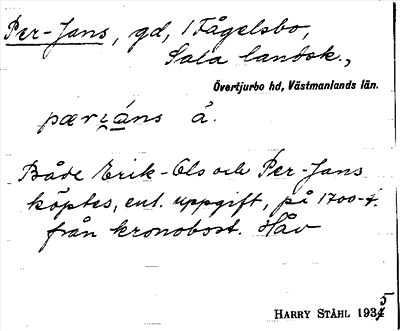 Per-Jans, gd, i Fågelsbo,
Sala landsk.,
Övertjurbo hd, Västmanlands län.
pær å.
Både Erik-Ols och Per-Jans
köptes, enl. uppgift, på 1700-t.
från kronobost. Håv
HARRY STÅHL 1935